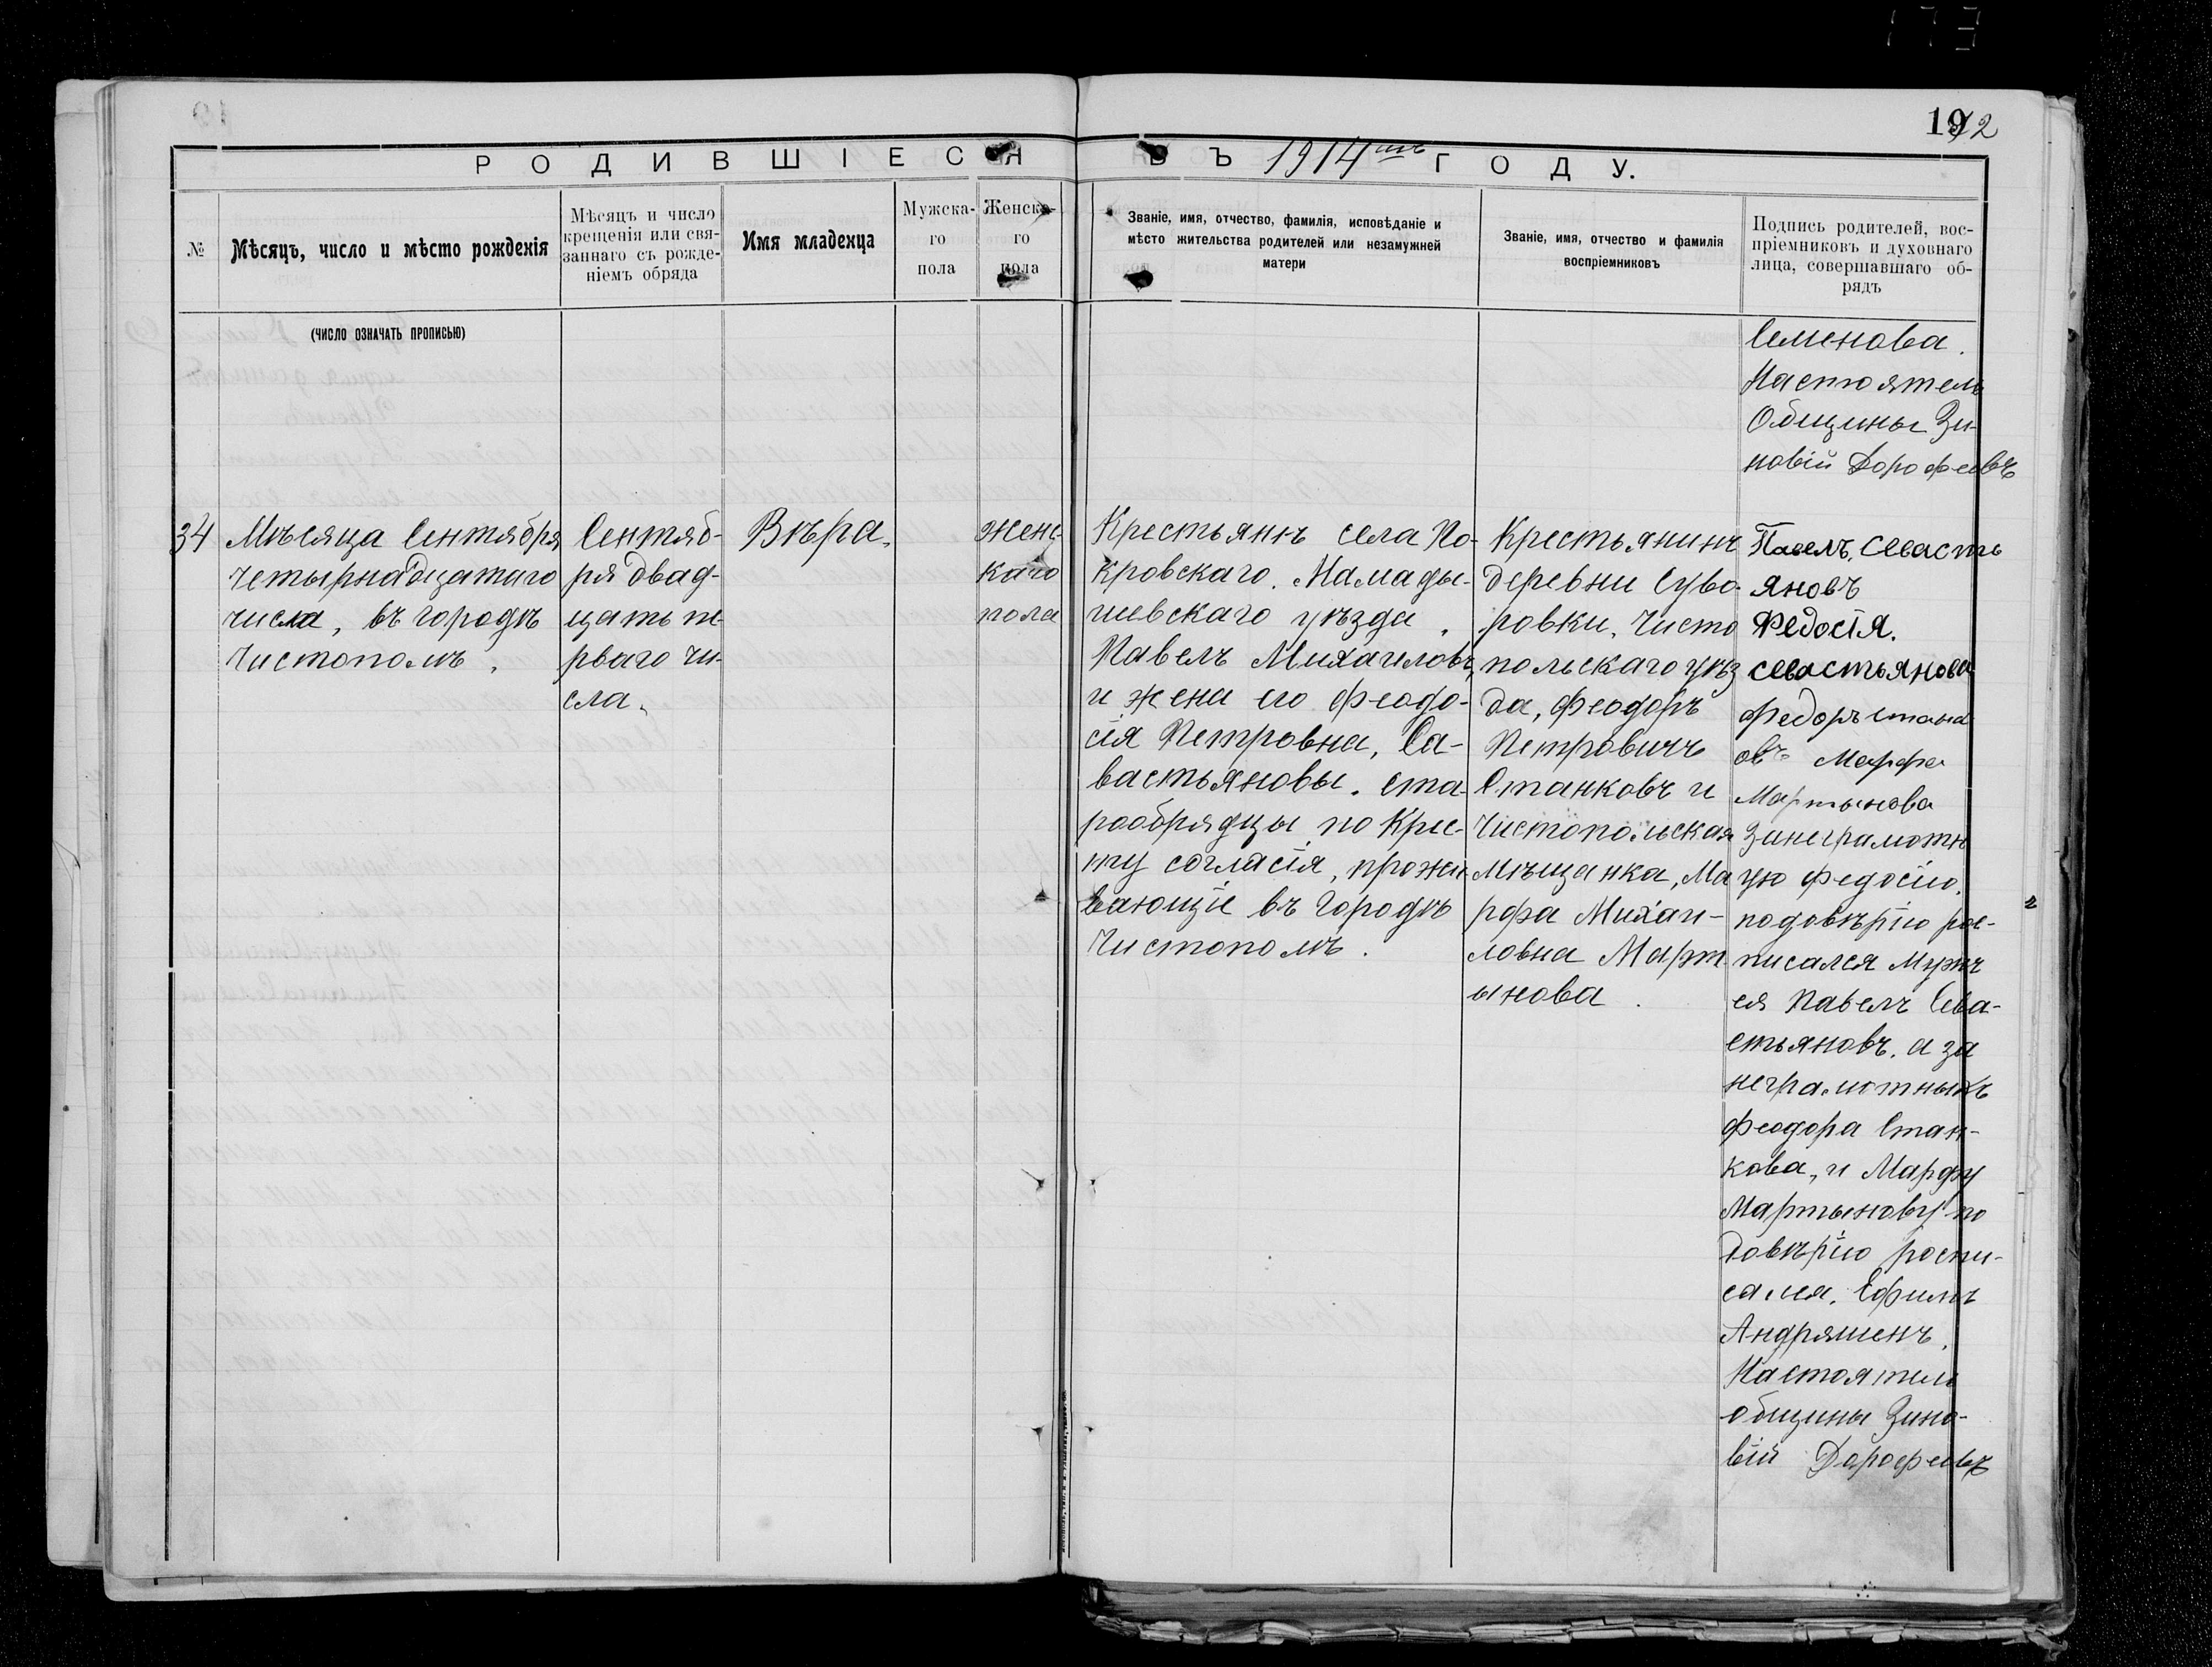 173
19
12
РОДИВШІЕСЯ ВЪ 1914мъ ГОДУ.
№
Мѣсяцъ, число и мѣсто рожденія
Мѣсяцъ и число
крещенія или свя-
заннаго съ рожде-
ніемъ обряда
Имя младенца
Мужска-
го
пола
Женска-
го
пола
Званіе, имя, отчество, фамилія, исповѣданіе и
мѣсто жительства родителей или незамужней
матери
Званіе, имя, отчество и фамилія
воспріемниковъ
Подпись родителей, вос-
пріемниковъ и духовнаго
лица, совершавшаго об-
рядъ
(ЧИСЛО ОЗНАЧАТЬ ПРОПИСЬЮ)
Семенова.
Настоятель
Общины Зи-
новій Дорофеевъ
34
Мѣсяца Сентября
четырнадцатаго
числа, въ городѣ
Чистополѣ.
Сентяб-
ря двад-
цать пе-
рваго чи-
сла.
Вѣра.
женс
каго
пола
Крестьянъ села По-
кровскаго. Мамады-
шевскаго уѣзда.
Павелъ Михаиловъ,
и жена его Феодо-
сія Петровна, Са-
вастьяновы. ста-
рообрядцы по Кре-
ту согласія, прожи-
вающіе въ городѣ
Чистополѣ.
Крестьянинъ
деревни Суво-
ровки, Чисто
польскаго уѣз
да, Феодоръ
Петровичъ
Станковъ и
Чистопольская
Мѣщанка, Ма
рфа Михаи-
ловна Март
ынова.
Павелъ. Севасть
яновъ
Федосія.
севостьянова
Федоръ Стана
овъ Марфа
Мартынова
За неграмотн
ую Федосію.
по довѣрію рос-
писался Мужъ
ея Павелъ Сева-
стьяновъ. а за
неграмотныхъ
Феодора Стан-
кова, и Марфу
Мартынову по
довѣрію роспи-
сался. Ефимъ
Андряшенъ.
Настоятель
общины Зино-
вій Дорофеевъ